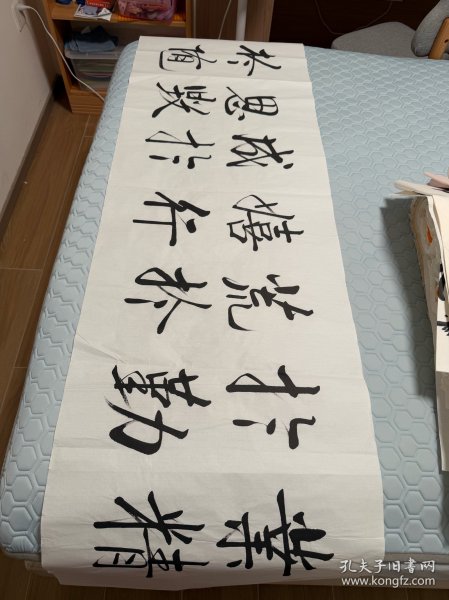 業精
於勤
荒於
嬉行
成於
思毀
於随
孔夫子旧书网
www.kongfz.com